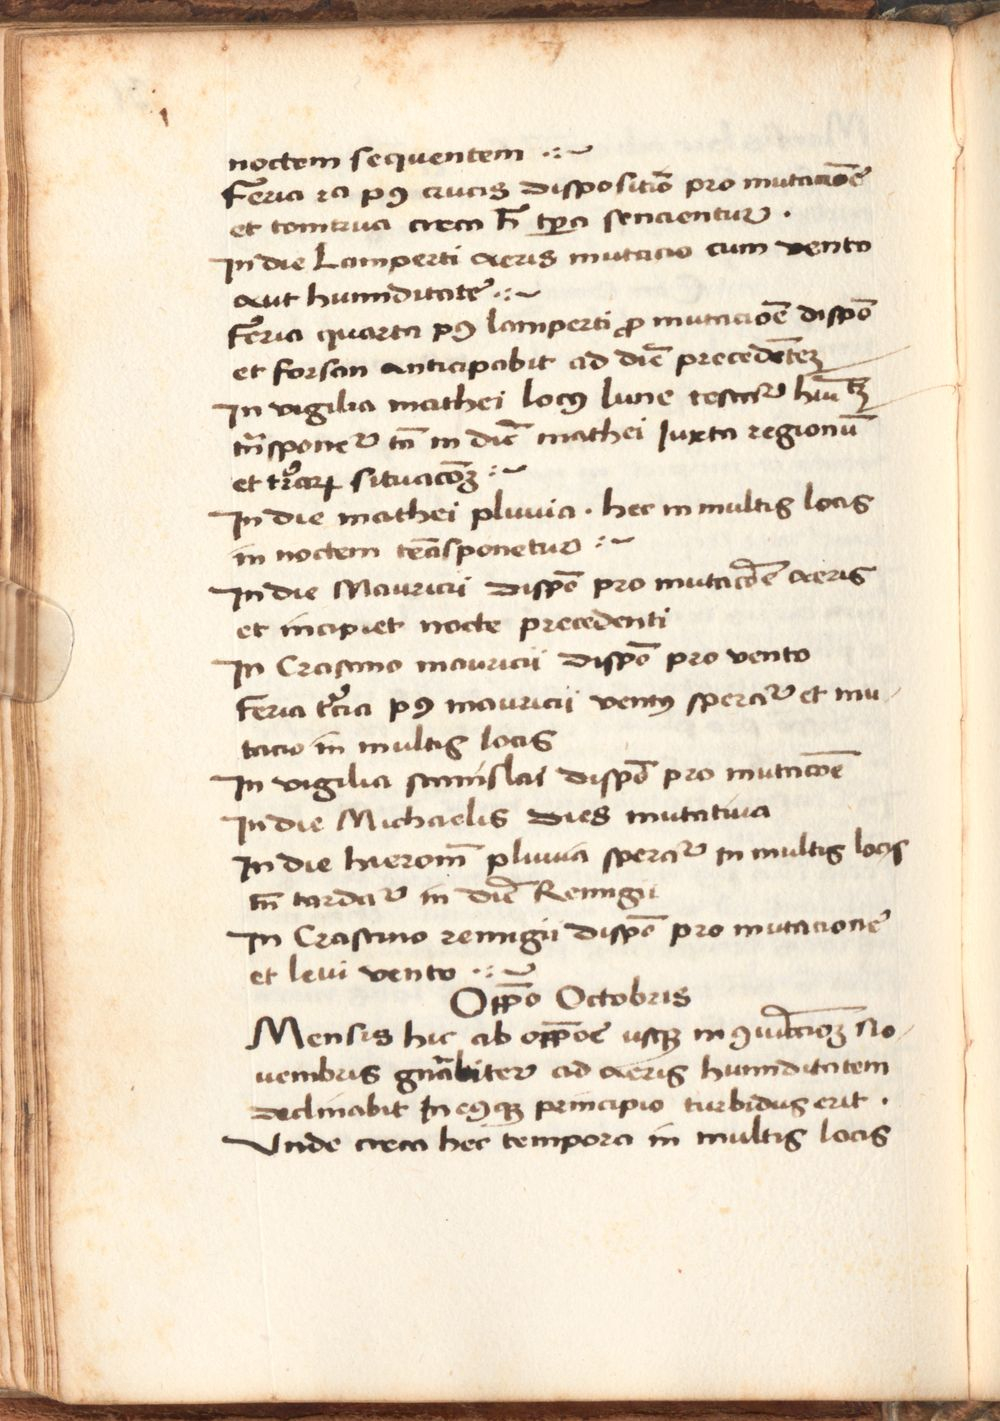 noctem sequentem
Feria ra pꝯ crucis dispositiō pro mutacioē
et tonitrua circa h̄ tꝑa sencientur .
In die Lamperti aeris mutacio cum vento
aut humiditate
Feria quarta pꝯ lamperti ꝓ mutacioē dispō
et forsan anticipabit ad diē precedētē
In vigilia mathei locꝯ lune
tn̄sponet᷑ tn̄ in diē mathei Iuxta regionū
et situacōꝫ
In die mathei pluuia . hec in multis locis
in noctem trāsponetur
In die Mauricii dispō pro mutacōe aeris
et incipiet nocte precedenti
In Crastino mauricii dispō pro vento
Feria tercia pꝯ mauricii ventꝯ sperat᷑ et mu-
tacio in multis locis
In vigilia stanislai dispō pro mutacōe
In die Michaelis dies mutatiua
In die hieronī pluuia sperat᷑ in multis locis
tn̄ tardat᷑ in diē Remigii
In Crastino remigii dispō pro mutacione
et leui vento
Opp̄o Octobris
Mensis hic ab opp̄oe usqꝫ in ꝯiūccioꝫ No-
uembris gnāliter ad aeris humiditatem
declinabit In eiꝯqꝫ principio turbidus erit .
Vnde circa hec tempora in multis locis